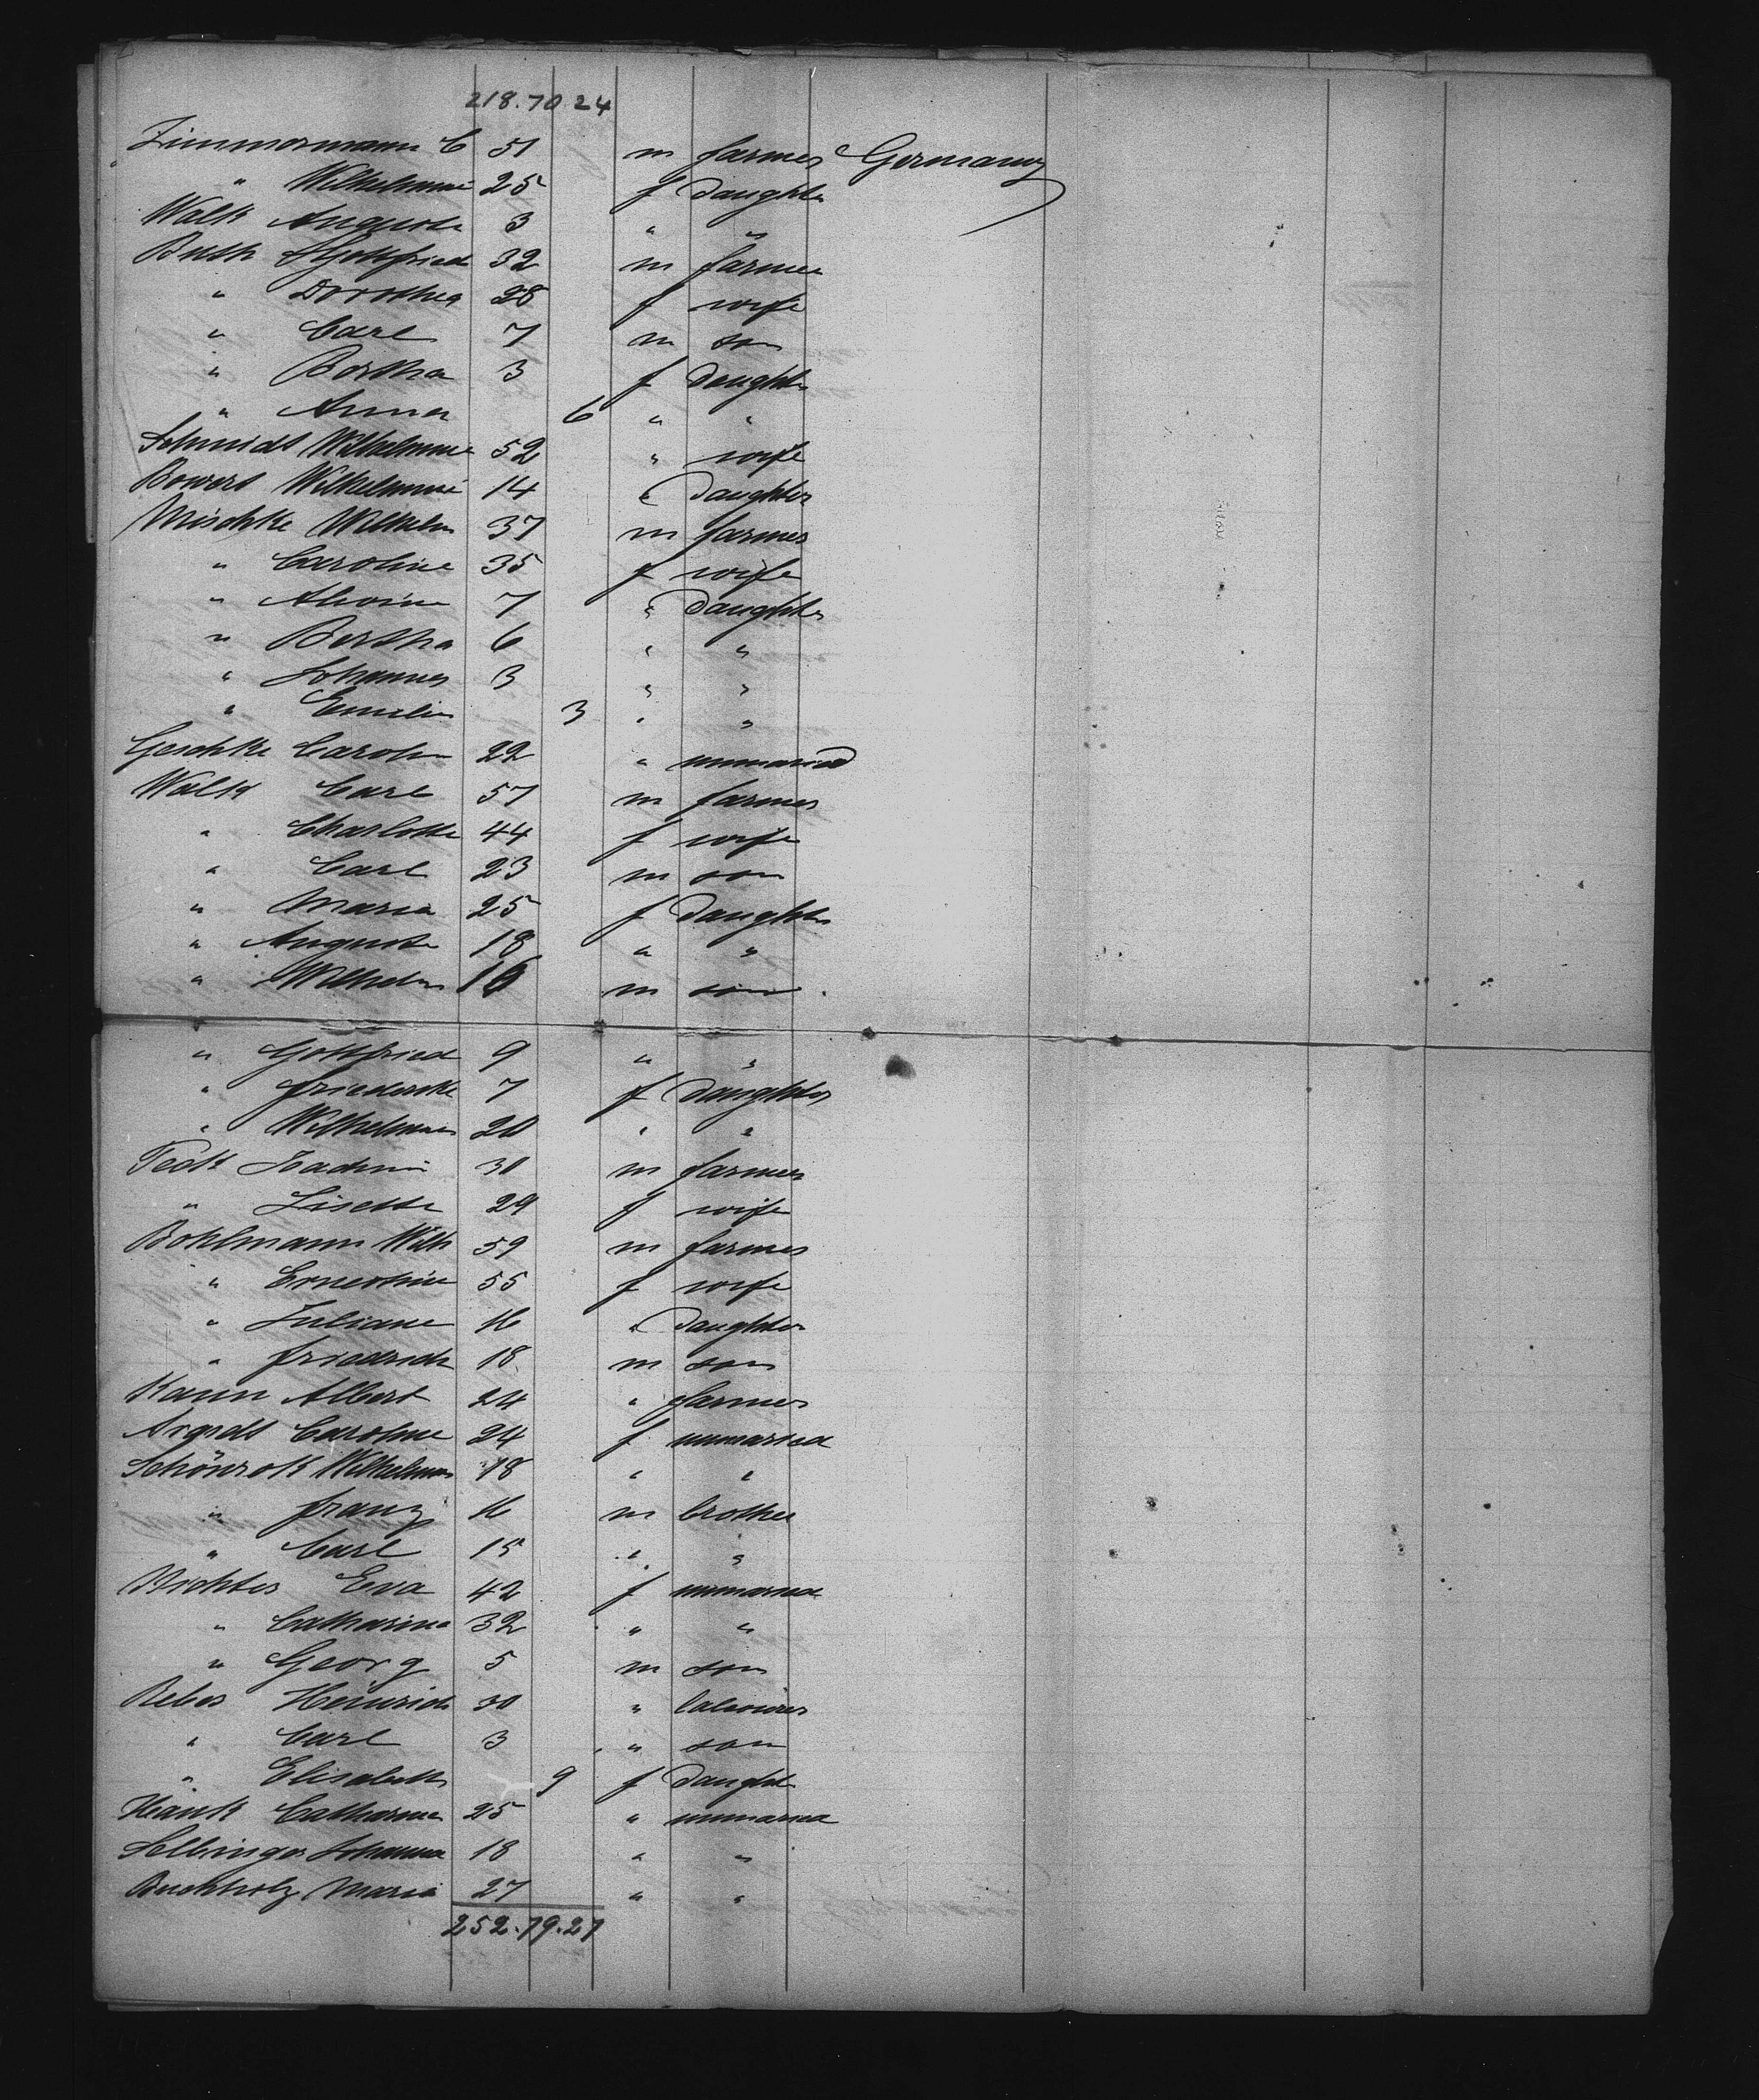 218. 70 24
Zimmermann C 51 m farmer Germany
" Wilhelmine 25 f daughter
Walk Auguste 3 " "
Buth Gottfried 32 m farmer
" Dorothea 28 f wife
" Carl 7 m son
" Bertha 3 f daughter
" Anna 6 " "
Schmidt Wilhelmine 52 " wife
Bowert Wilhelmine 14 " daughter
Mischke Wilhelm 37 m farmer
" Caroline 35 f wife
" Alwine 7 " daughter
" Bertha 6 " "
" Johannes 3 " "
" Emilie 3 " "
Geschke Carolin 22 " unmaried
Walk Carl 57 m farmer
" Charlotte 44 f wife
" Carl 23 m son
" Maria 25 f daughter
" Auguste 18 " "
" Wilhelm 16 m son
" Gottfried 9 " "
" friederike 7 f daughter
" Wilhelmine 20 " "
Teck Joachim 30 m farmer
" Lisette 29 f wife
Bohlmann Wilh 59 m farmer
" Ernestine 55 f wife
" Juliane 16 " daughter
" friedrich 18 m son
Kann Albert 24 " farmer
Arndt Caroline 24 f unmaried
Schönrok Wilhelmine 18 " "
" franz 16 m brother
" Carl 15 " "
Richter Eva 42 f unmaried
" Catharina 32 " "
" Georg 5 m son
Reber Heinrich 30 " labourer
" Carl 3 " son
" Elisabeth 9 f daught
Hauk Catharina 25 " unmaried
Selbinger Johanna 18 " "
Buchholz Maria 27 " "
252. 79. 27